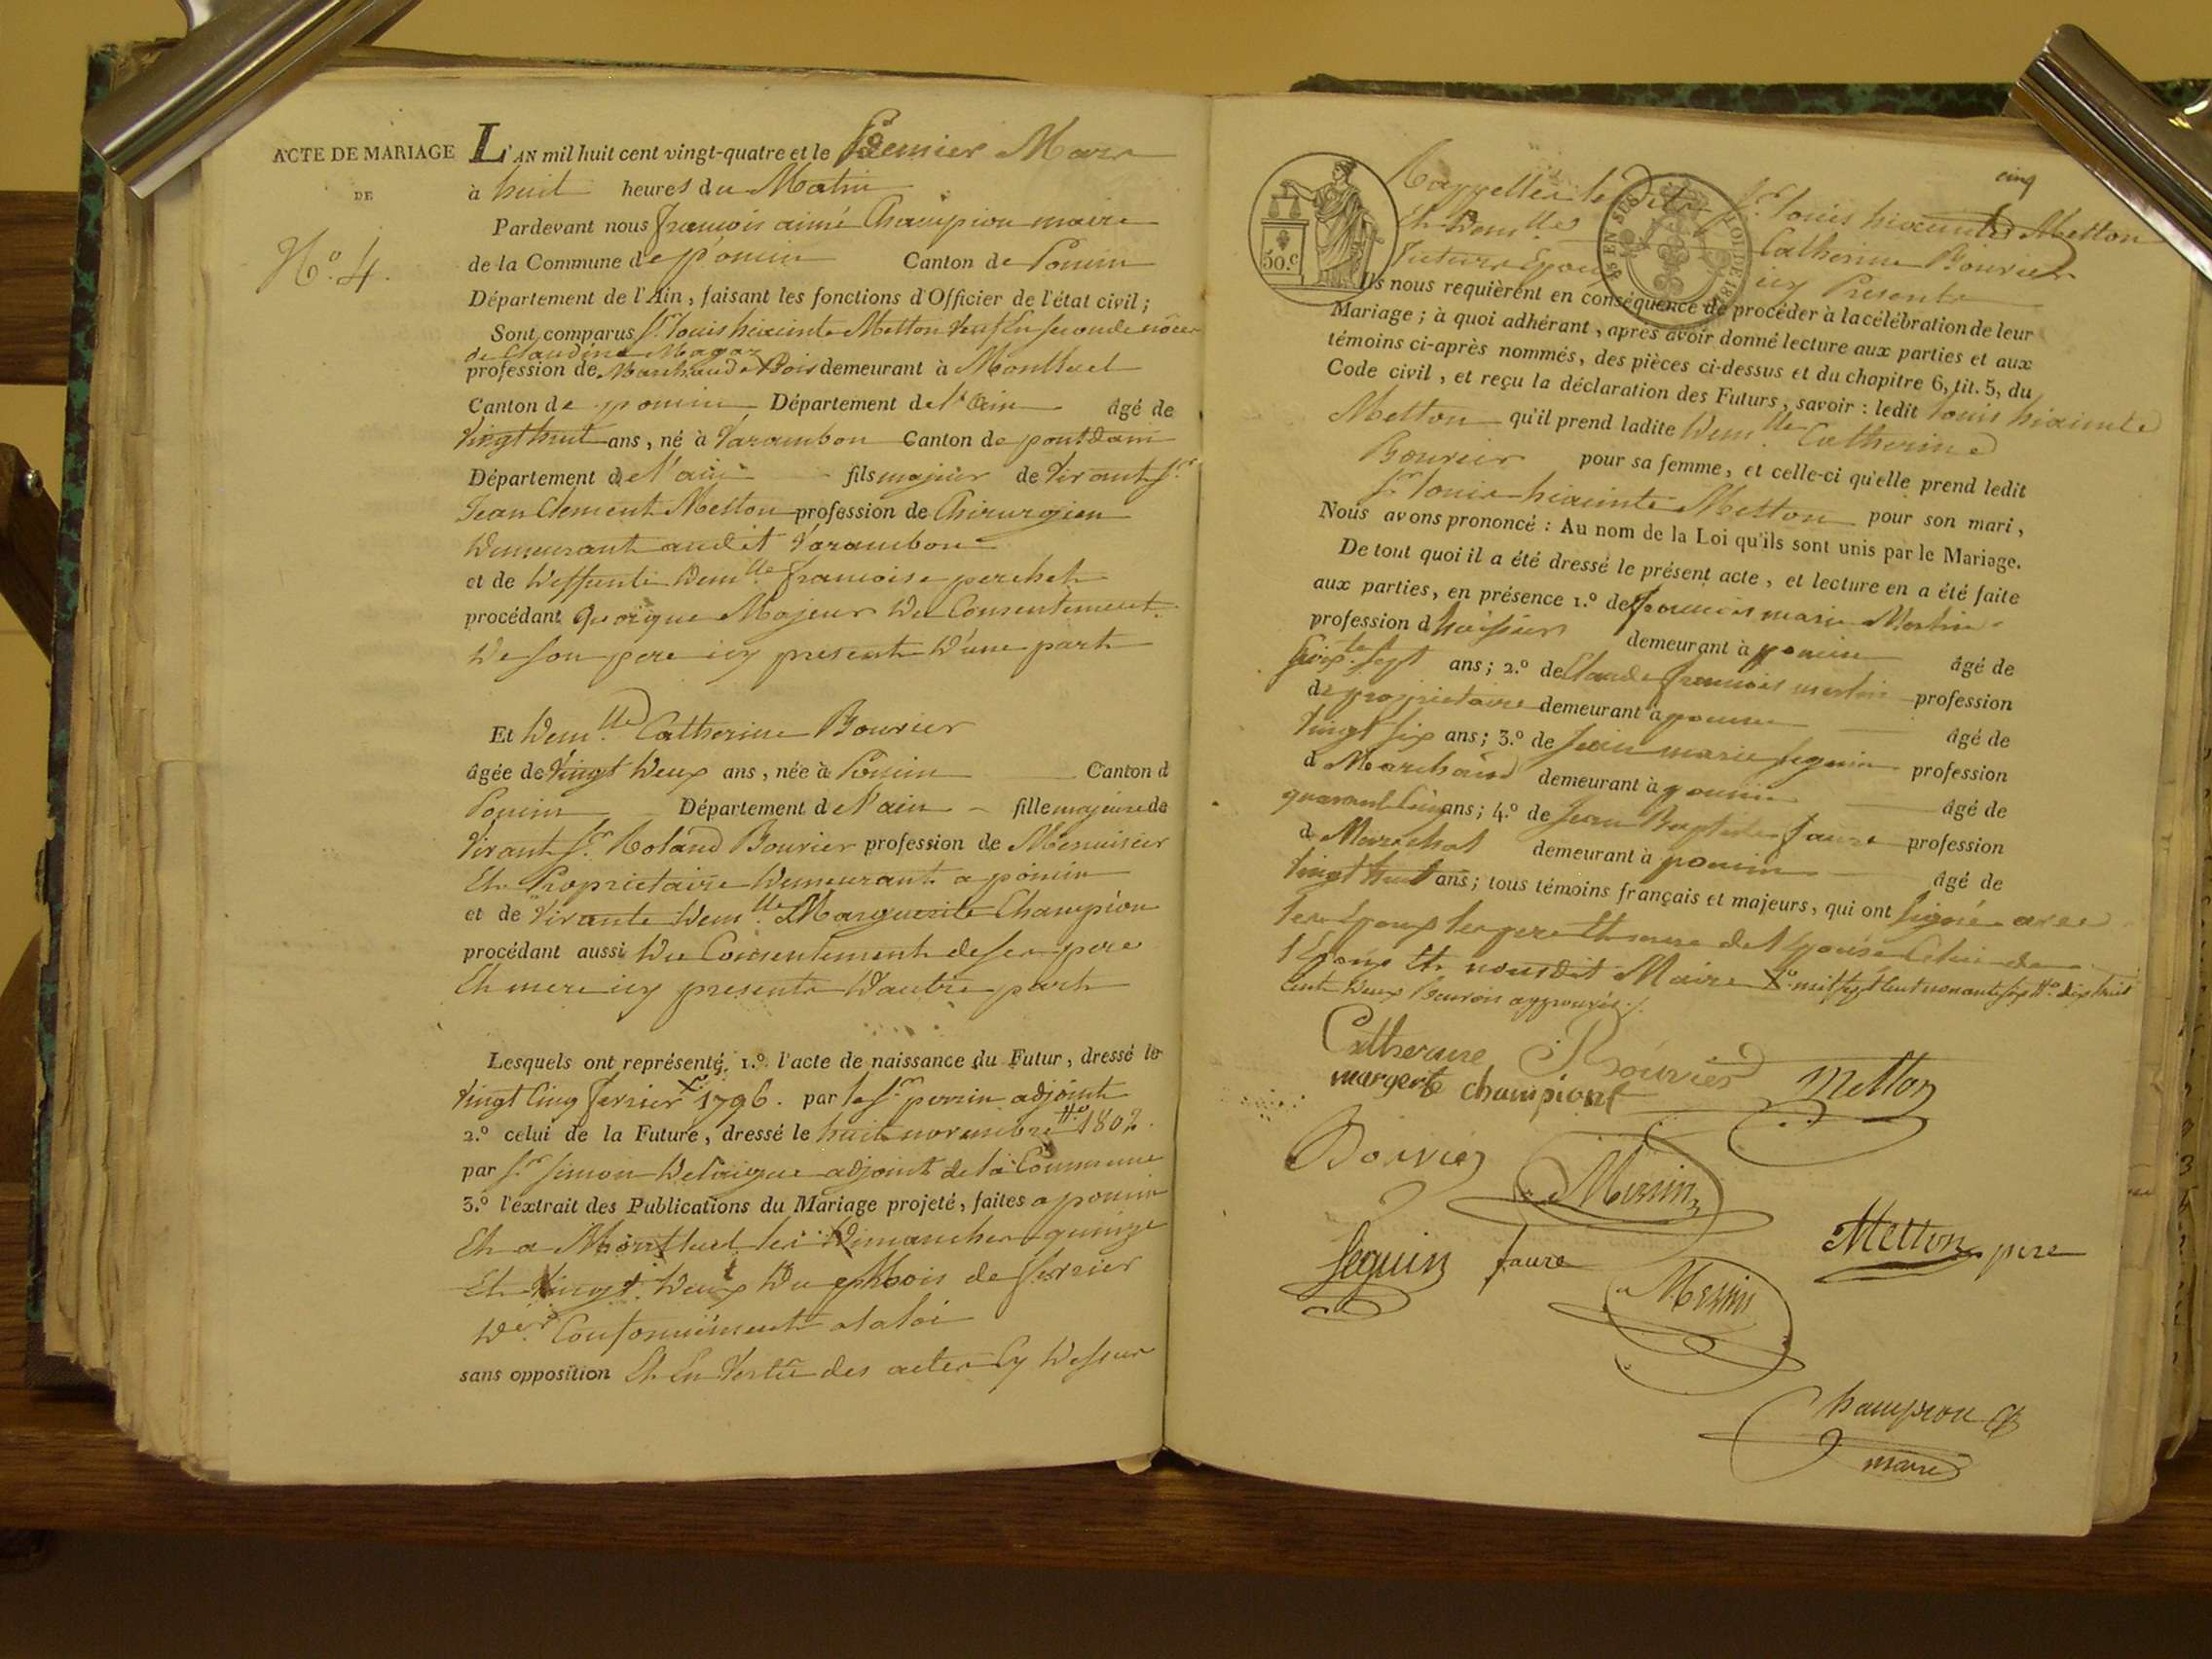 ACTE DE MARIAGE
DE
N.º 4.
L'AN mil huit cent vingt-quatre et le premier Mars
à huit heures du Matin
Pardevant nous françois aimé Champion maire
de la Commune de poncin Canton de Poncin
Département de l'Ain, faisant les fonctions d'Officier de l'état civil;
Sont comparus Sr. louis hiacinte Metton veuf En seconde nôces
de Claudine
profession de Marchand de Bois demeurant à Montluel
Canton de poncin Département de l'ain âgé de
vingt huit ans, né à Varambon Canton de pontdain
Département de l'ain fils majeur de vivant Sr.
Jean Clement Metton profession de Chirurgien
Demeurant audit Varambon
et de Deffunte Demlle. françoise perchet
procédant quoique Majeur Du Consentement
De son pere icy present D'une part
Et Demlle. Catherine Bouvier
âgée de vingt Deux ans, née à Poncin Canton d
Poncin Département de l'ain fille majeure de
vivant Sr. Roland Bouvier profession de Menuisier
Et Proprietaire Demeurant a poncin
et de vivante Demlle. Marguerite Champion
procédant aussi Du Consentement de ses pere
Et mere icy presents D'autre part
Lesquels ont représenté, 1.º l'acte de naissance du Futur, dressé le
vingt Cinq fevrier 1796. par le Sr. perrin adjoint
2.º celui de la Future, dressé le huit novembre 1802.
par Sr. Simon adjoint de la Commune
3.º l'extrait des Publications du Mariage projeté, faites a poncin
Et a Montluel les Dimanches quinze
Et vingt Deux Du Mois de fevrier
Der. Conformément a la loi
sans opposition Et En vertu des actes Cy Dessus
cinq
50.c
EN SUS
LOI DE 18
Rappellés ledit Sr. louis hiacinte Metton
Et Demlle Catherine Bouvier
futurs Epoux icy Presents
Ils nous requièrent en conséquence de procéder à la célébration de leur
Mariage; à quoi adhérant, après avoir donné lecture aux parties et aux
témoins ci-après nommés, des pièces ci-dessus et du chapitre 6, tit. 5, du
Code civil, et reçu la déclaration des Futurs, savoir: ledit louis hiacinte
Metton qu'il prend ladite Demlle. Catherine
Bouvier pour sa femme, et celle-ci qu'elle prend ledit
Sr. louis hiacinte Metton pour son mari,
Nous avons prononcé: Au nom de la Loi qu'ils sont unis par le Mariage.
De tout quoi il a été dressé le présent acte, et lecture en a été faite
aux parties, en présence 1.º de francois marie Merlin
profession d'huissier demeurant à poncin âgé de
ans; 2.º de Claude francois merlin profession
de proprietaire demeurant à poncin âgé de
vingt six ans; 3.º de Jean marie Seguin profession
d Marchand demeurant à poncin âgé de
quarante Cinq ans; 4.º de Jean Baptiste faure profession
d Marechal demeurant à poncin âgé de
vingt huit ans; tous témoins français et majeurs, qui ont signé avec
les Epoux les pere Et mere de l'Epouse Celui de
l'Epoux Et nous dit Maire X.º mil sept Cent nonante six #.º dix huit
Cent Deux Renvois approuvés./.
Catherine Bouvier
margerte championt
Metton
Bouvier
Merlin
Seguin
faure
Metton pere
Merlin
Champion
maire